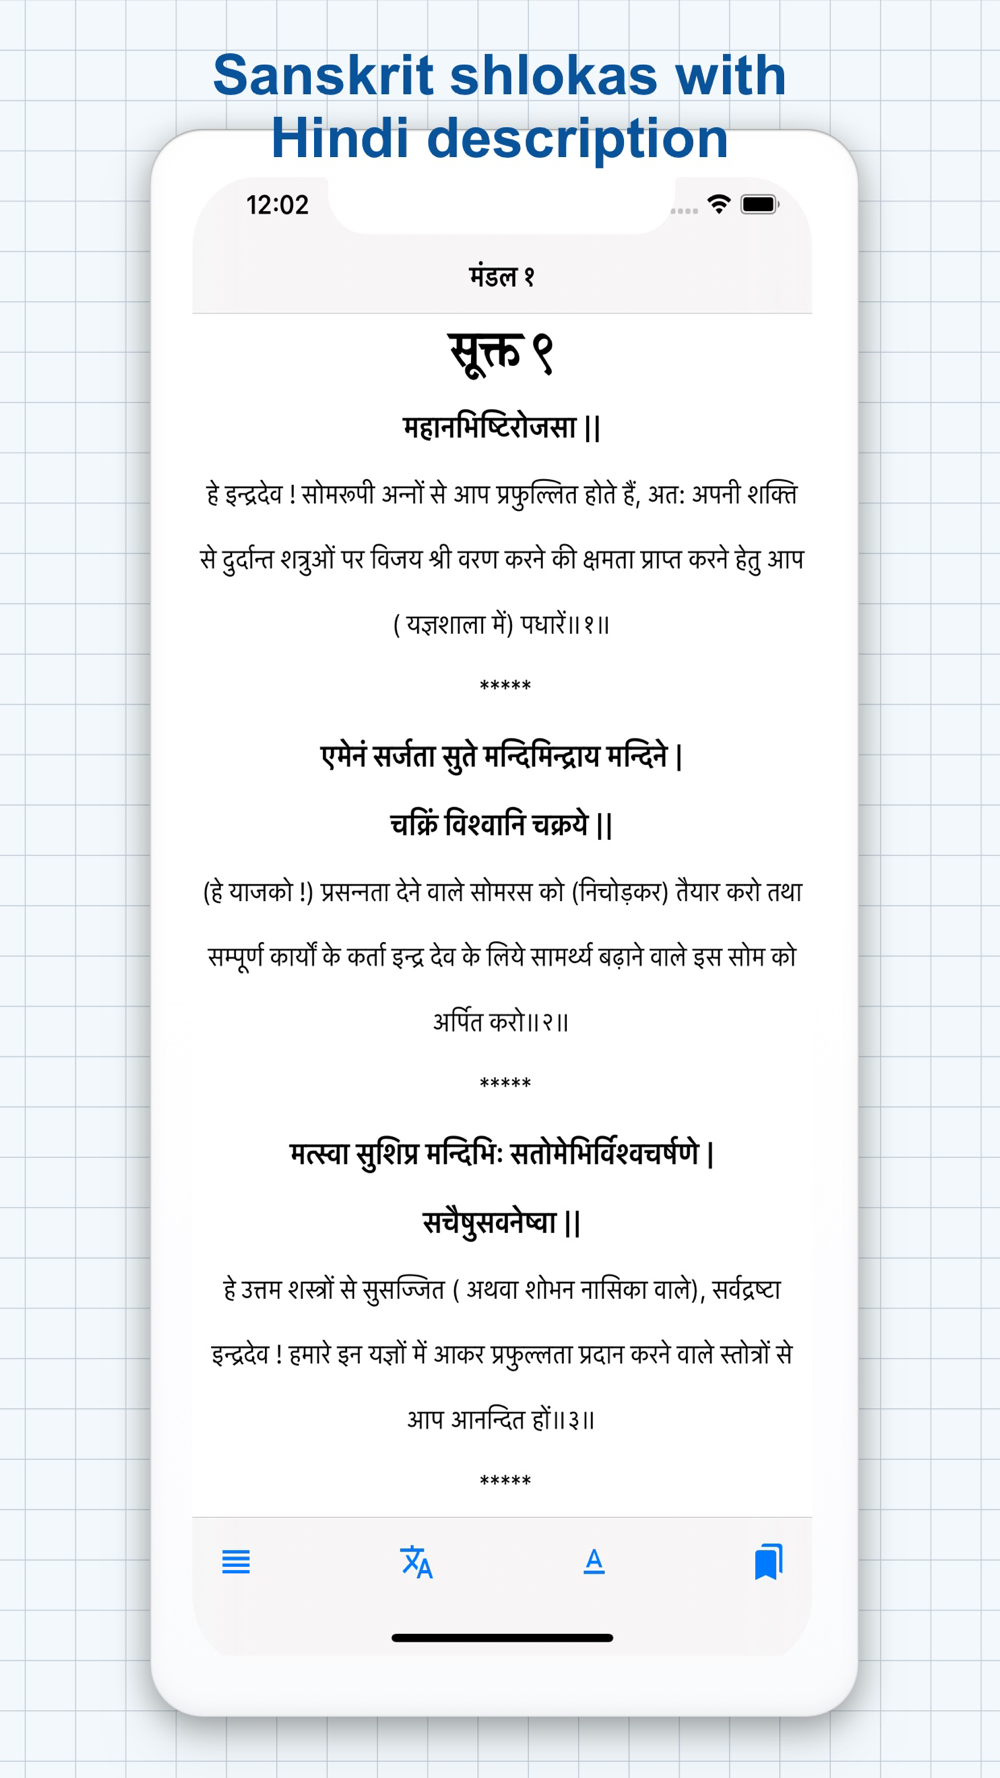 Sanskrit shlokas with
Hindi description
12:02
मंडल १
सूक्त ९
महानभिष्टिरोजसा ||
हे इन्द्रदेव ! सोमरूपी अन्नों से आप प्रफुल्लित होते हैं, अत: अपनी शक्ति
से दुर्दान्त शत्रुओं पर विजय श्री वरण करने की क्षमता प्राप्त करने हेतु आप
( यज्ञशाला में) पधारें॥१॥
*****
एमेनं सर्जता सुते मन्दिमिन्द्राय मन्दिने |
चक्रिं विश्वानि चक्रये ||
(हे याजको !) प्रसन्नता देने वाले सोमरस को (निचोड़कर) तैयार करो तथा
सम्पूर्ण कार्यों के कर्ता इन्द्र देव के लिये सामर्थ्य बढ़ाने वाले इस सोम को
अर्पित करो॥२॥
*****
मत्स्वा सुशिप्र मन्दिभिः सतोमेभिर्विश्वचर्षणे |
सचैषुसवनेष्वा ||
हे उत्तम शस्त्रों से सुसज्जित ( अथवा शोभन नासिका वाले), सर्वद्रष्टा
इन्द्रदेव ! हमारे इन यज्ञों में आकर प्रफुल्लता प्रदान करने वाले स्तोत्रों से
आप आनन्दित हों॥३॥
*****